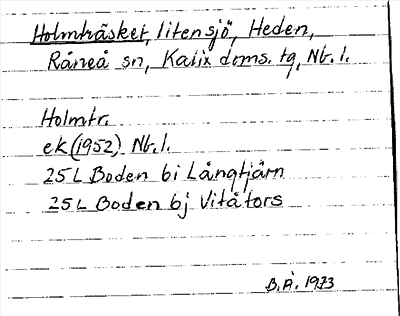 Holmträsket, liten sjö, Heden,
Råneå sn, Kalix doms. tg, Nb. l.
Holmtr.
ek (1952) Nb. l.
25 L Boden bi Långtjärn
25 L Boden bj Vitåtors
B.Å. 1973